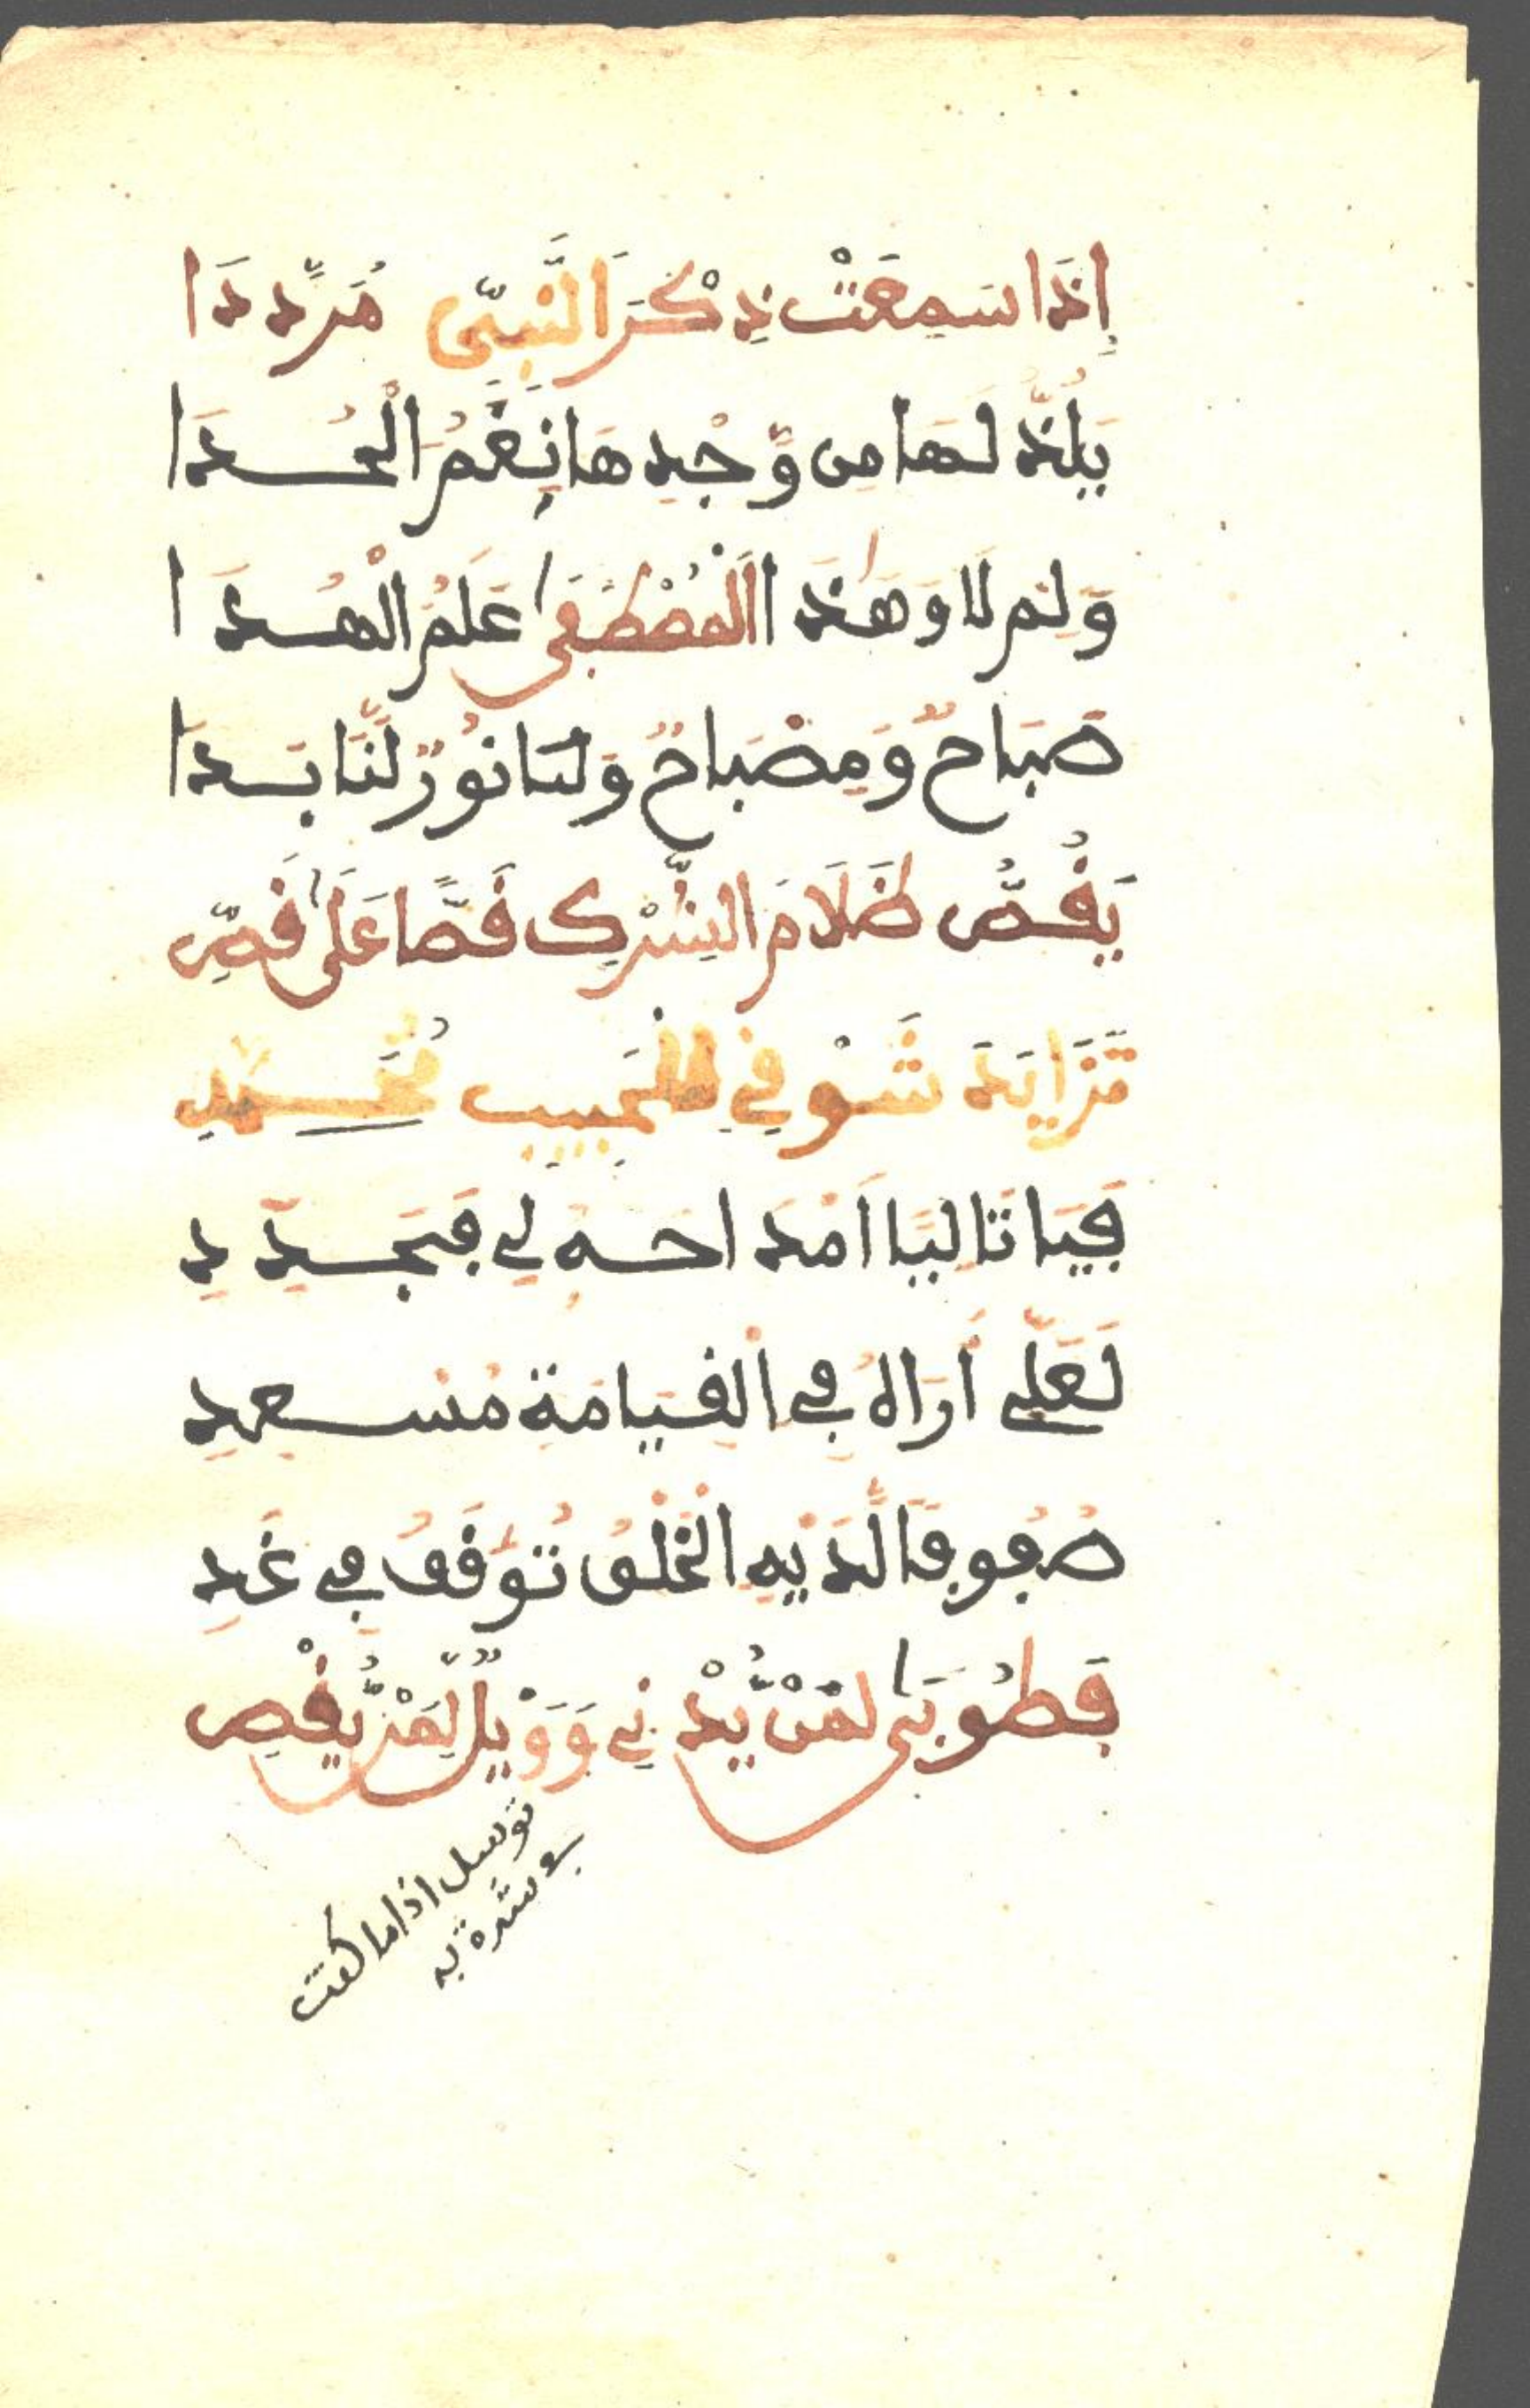 إِذَا سَمِعَتْ ذِكْرَ النَّبِيِّ مُرَدَّدَا
يَلَذُّ لَهَا مِن وَّجْدِهَا نَغَمُ الْحُدَا
وَلِم لَا وَهَذَا الْمُصْطَفَى عَلَمُ الْهُدَا
صَبَاحٌ وَمِصْبَاحٌ وَلَنَا نُورٌ لَّنَا بَدَا
يَقُصُّ ظَلَامَ الشِّرْكِ قَصًّا عَلَى قَصِّ
تَزَايَدَ شَوْقِي لِلْحَبِيبِ مُحَمَّدِ
فَيَا تَالِيًا أَمْدَاحَهُ لِي فَجَدِّدِ
لَعَلِّي أَرَاهُ فِي الْقِيَامَةِ مُسْعِدِ
صُفُوفًا لَّدَيْهِ الْخَلْقُ تُوقَفُ فِي غَدِ
فَطُوبَى لِمَنْ يُّدْنِي وَوَيْلٌ لِّمَنْ يُّقْصِ
توسل اذا ما كنت
في شدة به